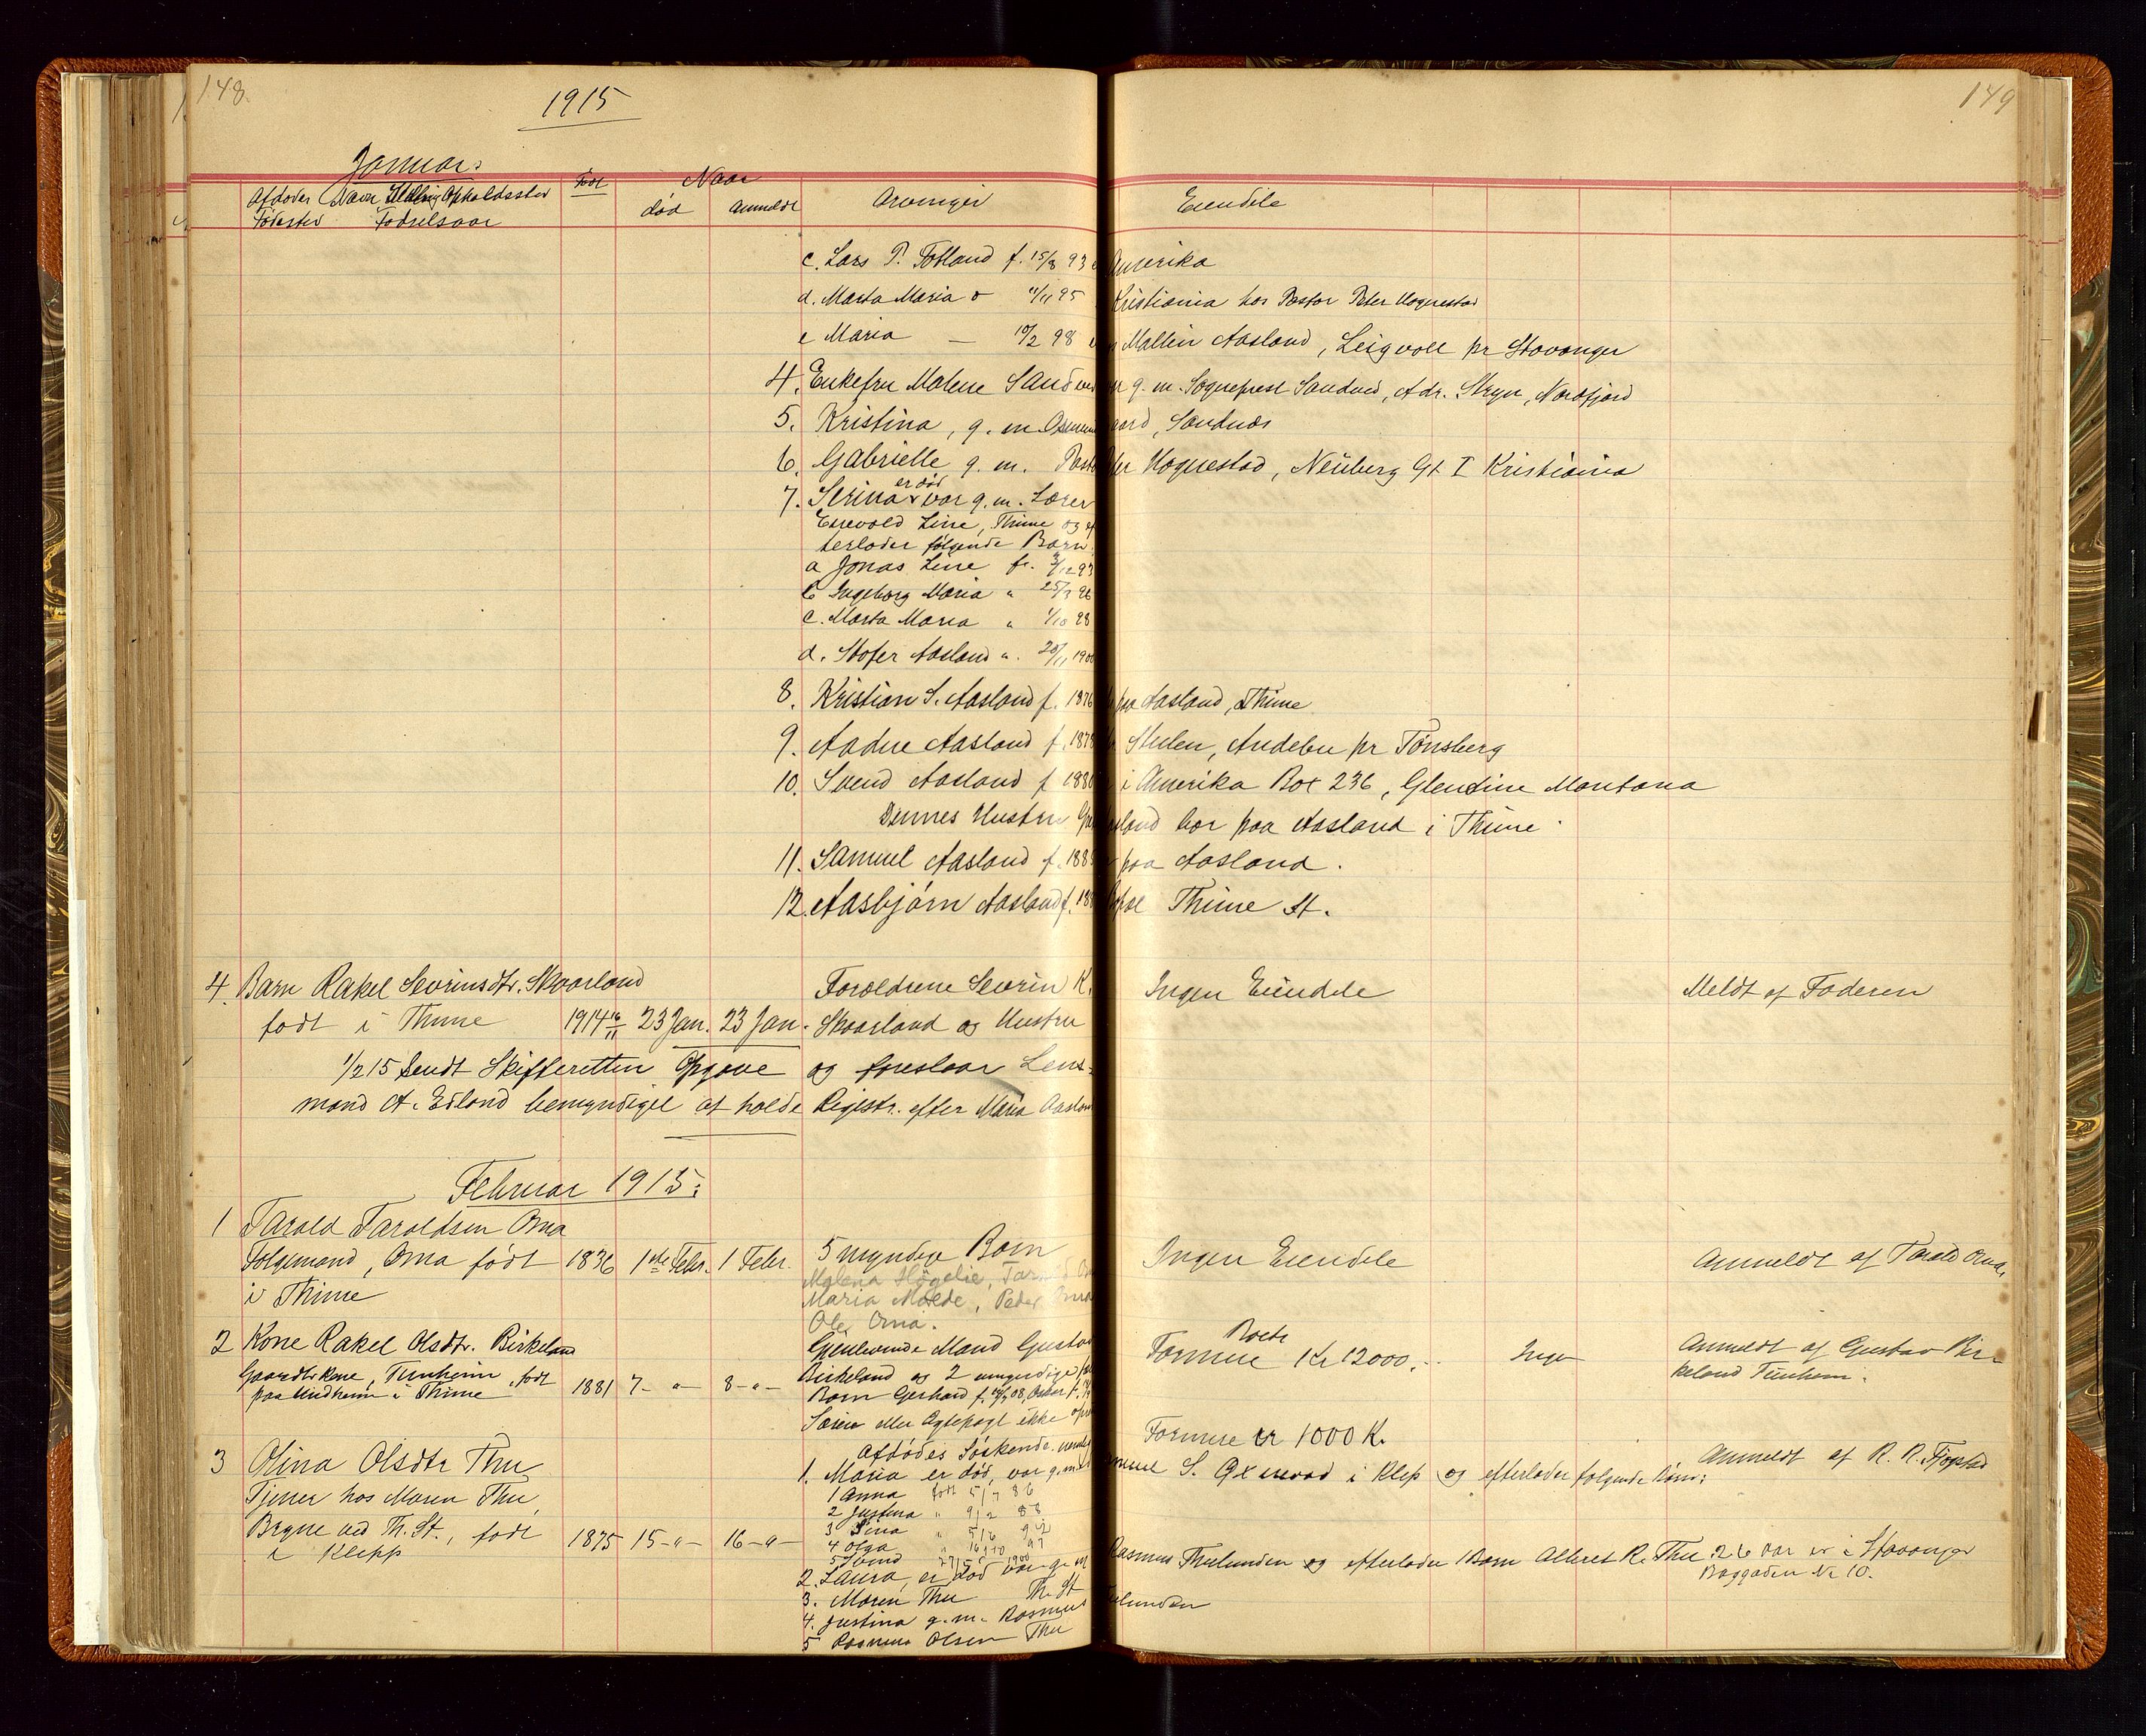 148.
149
1915
Januar.
Afdødes Navn Stilling Opholdssted Født Naar
Fødested Fødselsaar død Anmeldt Arvinger Eiendele
c. Lars P. Fotland f. 15/8 93 Amerika
d. Marta Maria o 11/11 95 Kristiania hos Pastor Peter Hognestad
e Maria — 10/2 98 Mallin Aasland, Leigvoll pr Stavanger
4. Enkefru Malene Sandved g. m. Sogneprest Sandved, Adr. Stryn, Nordfjord
5. Kristina, g. m. Gaard, Sandnæs
6. Gabrielle g. m. Pastor Hognestad, Neuberg Gt I Kristiania
er død
7. Serina var g. m. Lærer
Enevold Line, Thime og ef
terlader følgende Børn
a Jonas Line f. 3/12 93
b Ingeborg Maria " 25/3 96
c. Marta Maria " 1/10 98
d. Stofer Aasland ". 20/11 1900
8. Kristian S. Aasland f. 1876 paa Aasland, Thime
9. Aadne Aasland f. 1878 Stulen, Andebu pr Tønsberg
10. Svend Aasland f 1880 i Amerika Box 236, Glendine Montana
Dennes Hustru bor paa Aasland i Thime.
11. Samuel Aasland f. 188 paa Aasland.
12. Aasbjørn Aasland f. 188 Thime St.
4. Barn Rakel Sevrinsdtr. Skaarland Forældrene Sevrin K. Ingen Eiendele Meldt af Faderen
født i Thime 1914 16/11 23 Jan. 23 Jan. Skaarland og Hustru
1/2 15 sendt Skifteretten Opgave og foreslaar Lens-
mand A. Edland bemyndiget at holde Registr. efter Maria Aasland
Februar 1915.
1 Tarald Taraldsen Oma
Folgemand, Oma født 1836 1ste Febr. 1 Febr. 5 myndige Børn Ingen Eiendele Anmeldt af Tarald Oma.
i Thime Malena Høgelie, Tarald
Maria Molde, Peder Oma
Ole Oma.
2 Kone Rakel Olsdtr. Birkeland Gjenlevende Mand Gustav Boets Formue Kr 12000. Ingen Anmeldt af Gustav Bir-
Gaardbr. Kone, Tunheim, født 1881 7- " - 8- " - Birkeland og 2 umyndige keland Tunheim.
paa Undheim i Thime Barn Gerhard f.
Særeie eller Ægtepagt ikke
3 Olina Olsdtr Thu Afdødes Søskende Formue er 1000 K. Anmeldt af R. R. Fjogstad
1. Maria er død, var g. m. S. i Klep og efterlader følgende Børn:
Tjener hos Maren Thu, 1 Anna født 5/7 86
2 Justina " 9/2 88
Bryne ved Th. St., født 1875 15- " - 16- " - 3 Sina " 5/6 92
i Klepp 4 Olga " 16/10 97
5 Svend 27/5 1900
2. Laura, er død var g. m Rasmus Thulunden og efterlader 1 Barn Albret R. Thu 26 aar er i Stavanger
Baggaden Nr 10.
3. Maren Thu Th. St
4. Justina g. m. Rasmus
5 Rasmus Olsen Thu